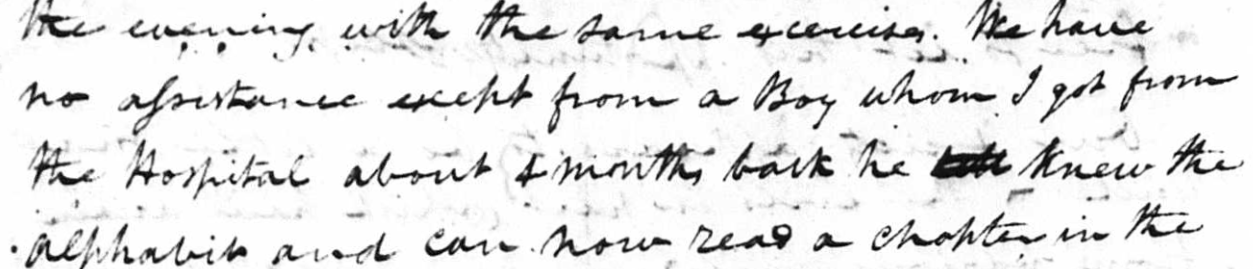 the evening with the same exercises. We have
no assistance except from a Boy whom I got from
the Hospital about 4 months back he knew the
alphabit and can now read a chapter in the